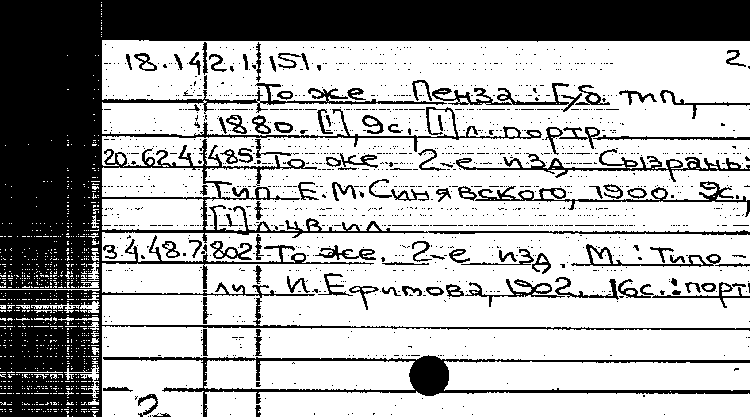 18.142.1.151. 2.
То же. Пенза : Губ. тип.,
1880. [1], 9с., [1] л. портр.
20.62.4.485. То же. 2-е изд. Сызрань:
Тип. Е.М.Синявского, 1900. 9с.,
[1] л. цв. ил.
34.48.7.802. То же. 2-е изд. М. : Типо-
лит. И. Ефимова, 1902. 16с. : порт
2